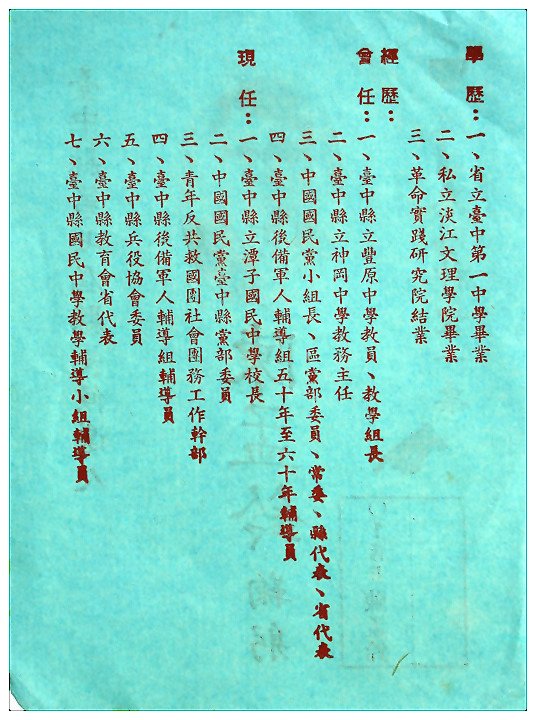 學歷：一、省立臺中第一中學畢業
二、私立淡江文理學院畢業
三、革命實踐研究院結業
經歷：
曾任：一、臺中縣立豐原中學教員、教學組長
二、臺中縣立神岡中學教務主任
三、中國國民黨小組長、區黨部委員、常委、縣代表、省代表
四、臺中縣後備軍人輔導組五十年至六十年輔導員
現任：一、臺中縣立潭子國民中學校長
二、中國國民黨臺中縣黨部委員
三、青年反共救國團社會團務工作幹部
四、臺中縣後備軍人輔導組輔導員
五、臺中縣兵役協會委員
六、臺中縣教育會省代表
七、臺中縣國民中學教學輔導小組輔導員